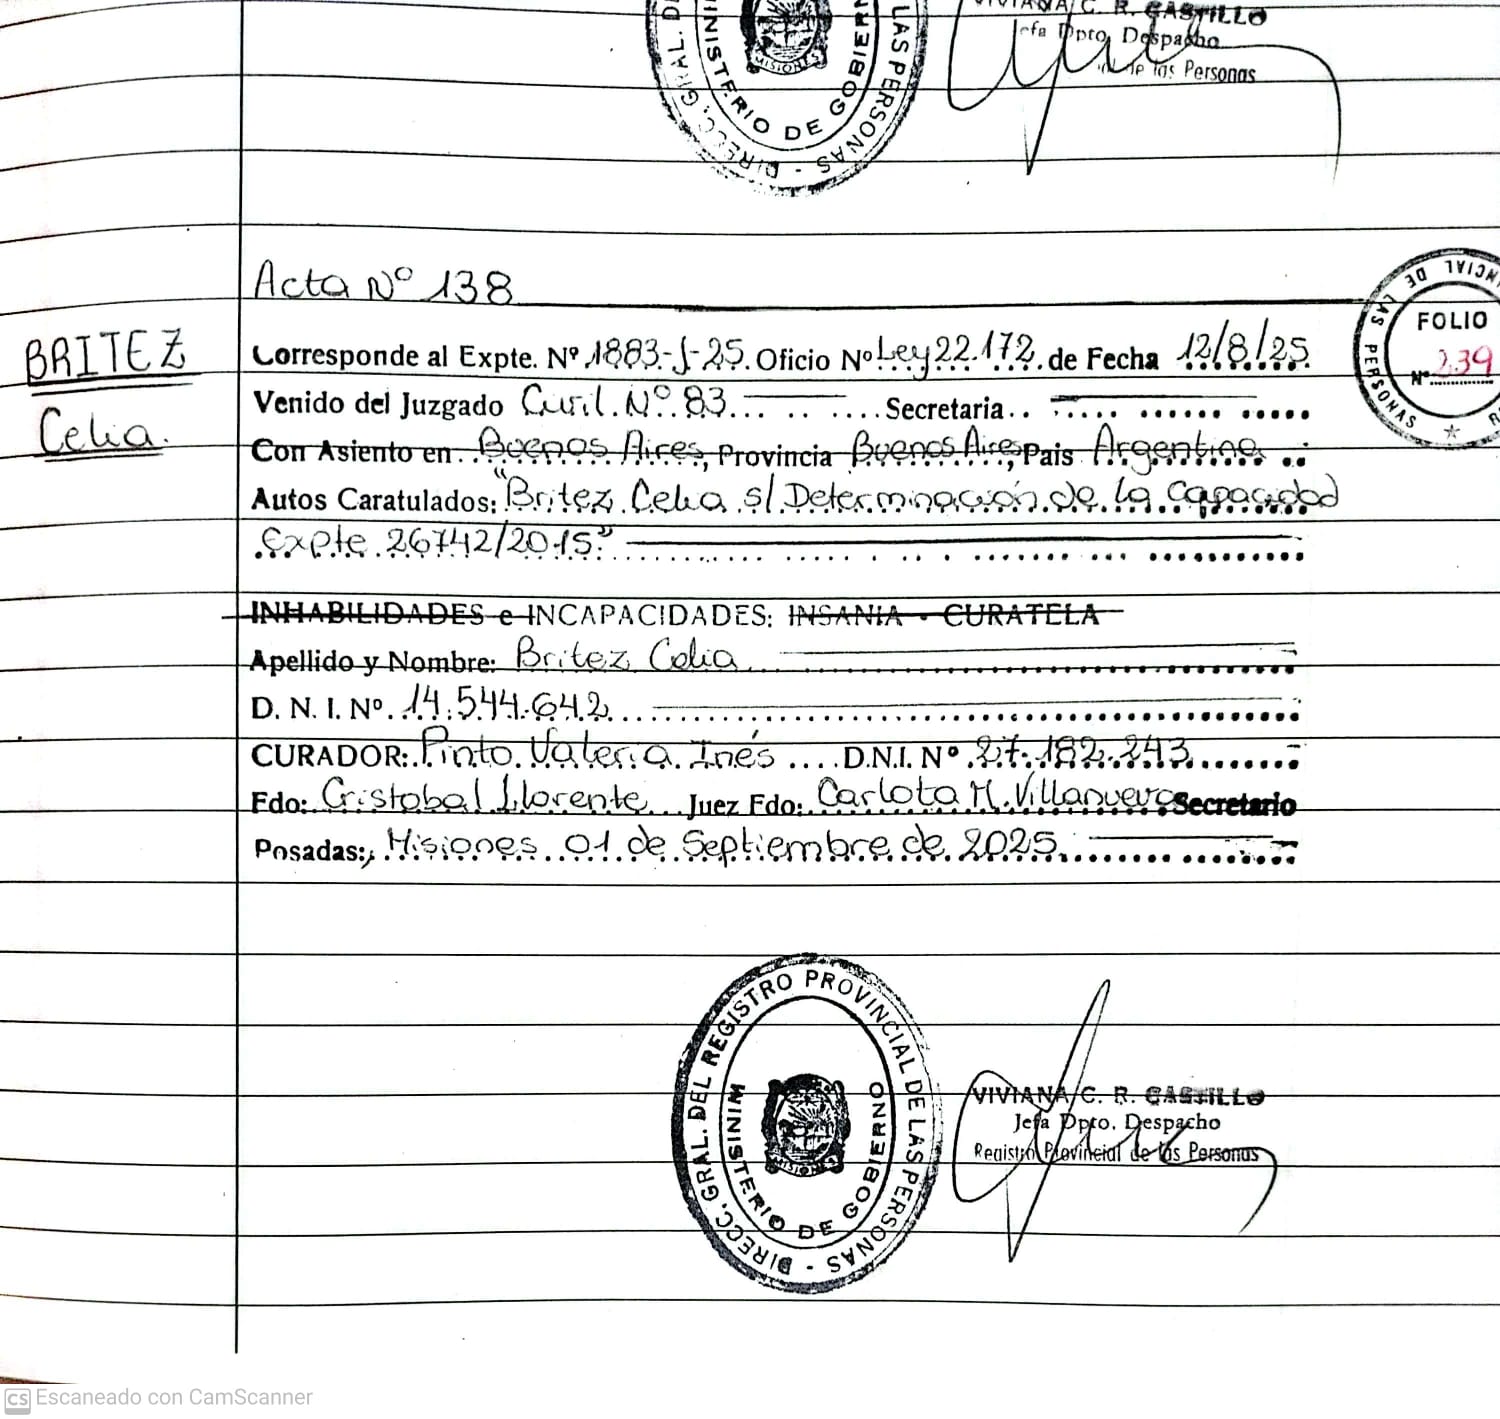 MINISTERIO DE GOBIERNO
MISIONES
VIVIANA C. R. CASTILLO
Jefa Dpto. Despacho
de las Personas
Acta Nº 138
FOLIO
Nº 239
BRITEZ
Celia.
Corresponde al Expte. Nº 1883-J-25. Oficio Nº Ley 22.172. de Fecha 12/8/25.
Venido del Juzgado Civil. Nº 83. Secretaria
Con Asiento en Buenos Aires, Provincia Buenos Aires, Pais Argentina
Autos Caratulados: "Britez Celia s/ Determinación de la Capacidad
Expte 26742/2015"
INHABILIDADES e INCAPACIDADES: INSANIA - CURATELA
Apellido y Nombre: Britez Celia
D. N. I. Nº 14.544.642
CURADOR: Pinto Valeria Inés D.N.I. Nº 27.182.243
Fdo: Cristobal Llorente Juez Fdo: Carlota M. Villanueva Secretario
Posadas:, Misiones 01 de Septiembre de 2025.
DIRECC. GRAL. DEL REGISTRO PROVINCIAL DE LAS PERSONAS -
MINISTERIO DE GOBIERNO
MISIONES
VIVIANA C. R. CASTILLO
Jefa Dpto. Despacho
Registro Provincial de las Personas
CS Escaneado con CamScanner